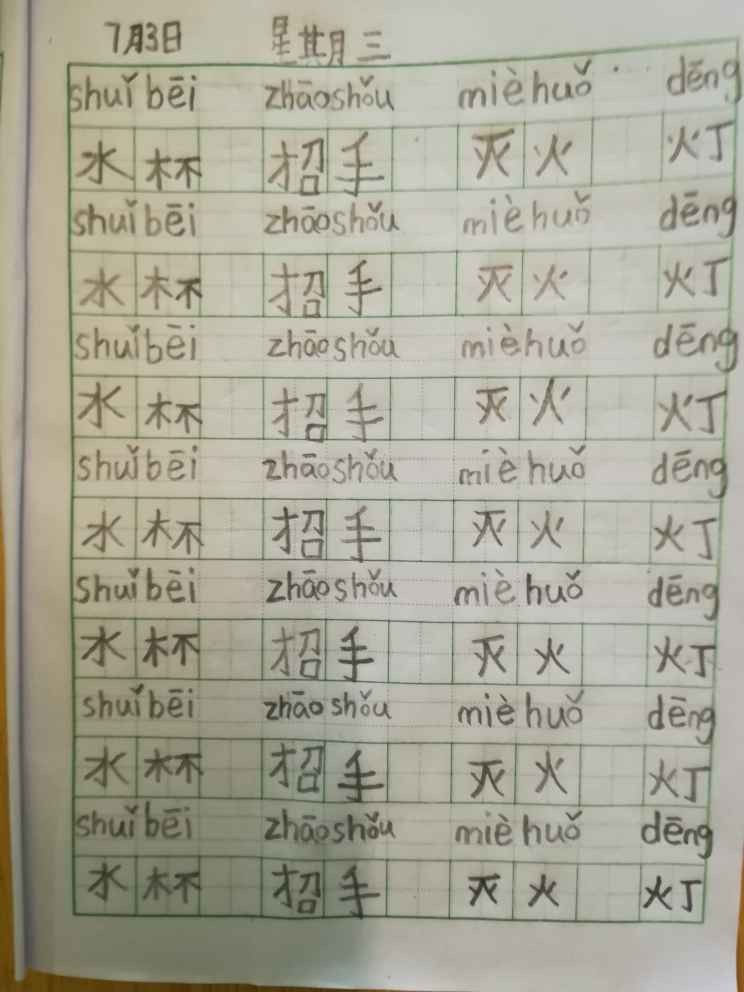 7月3日 星期三
shuǐ bēi zhāo shǒu miè huǒ dēng
水杯 招手 灭火 灯
shuǐ bēi zhāo shǒu miè huǒ dēng
水杯 招手 灭火 灯
shuǐ bēi zhāo shǒu miè huǒ dēng
水杯 招手 灭火 灯
shuǐ bēi zhāo shǒu miè huǒ dēng
水杯 招手 灭火 灯
shuǐ bēi zhāo shǒu miè huǒ dēng
水杯 招手 灭火 灯
shuǐ bēi zhāo shǒu miè huǒ dēng
水杯 招手 灭火 灯
shuǐ bēi zhāo shǒu miè huǒ dēng
水杯 招手 灭火 灯